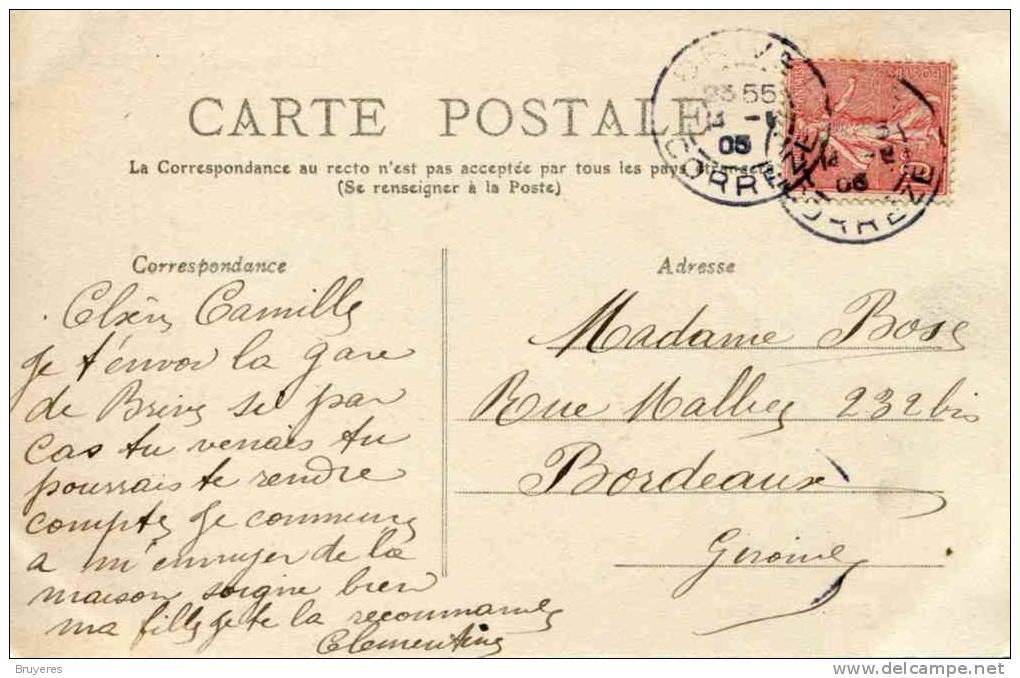 CARTE POSTALE
La Correspondance au recto n'est pas acceptée par tous les pays étrangers
(Se renseigner à la Poste)
BRIVE
23 55
05
CORREZE
05
CORREZE
Correspondance
Chère Camille
Je t'envoi la gare
de Brive si par
cas tu venais tu
pourrais te rendre
compte Je commence
a m'ennuyer de la
maison soigne bien
ma fille je te la recommande
Clementine
Adresse
Madame Bose
Rue Malbec 232 bis
Bordeaux
Gironde
Bruyeres
delcampe.net